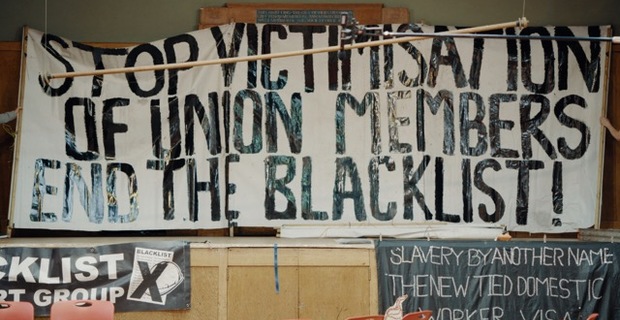 STOP VICTIMISATION
OF UNION MEMBERS
END THE BLACKLIST!
CKLIST
RT GROUP
BLACKLIST
X
SLAVERY BY ANOTHER NAME
THE NEW TIED DOMESTIC
WORKER VISA